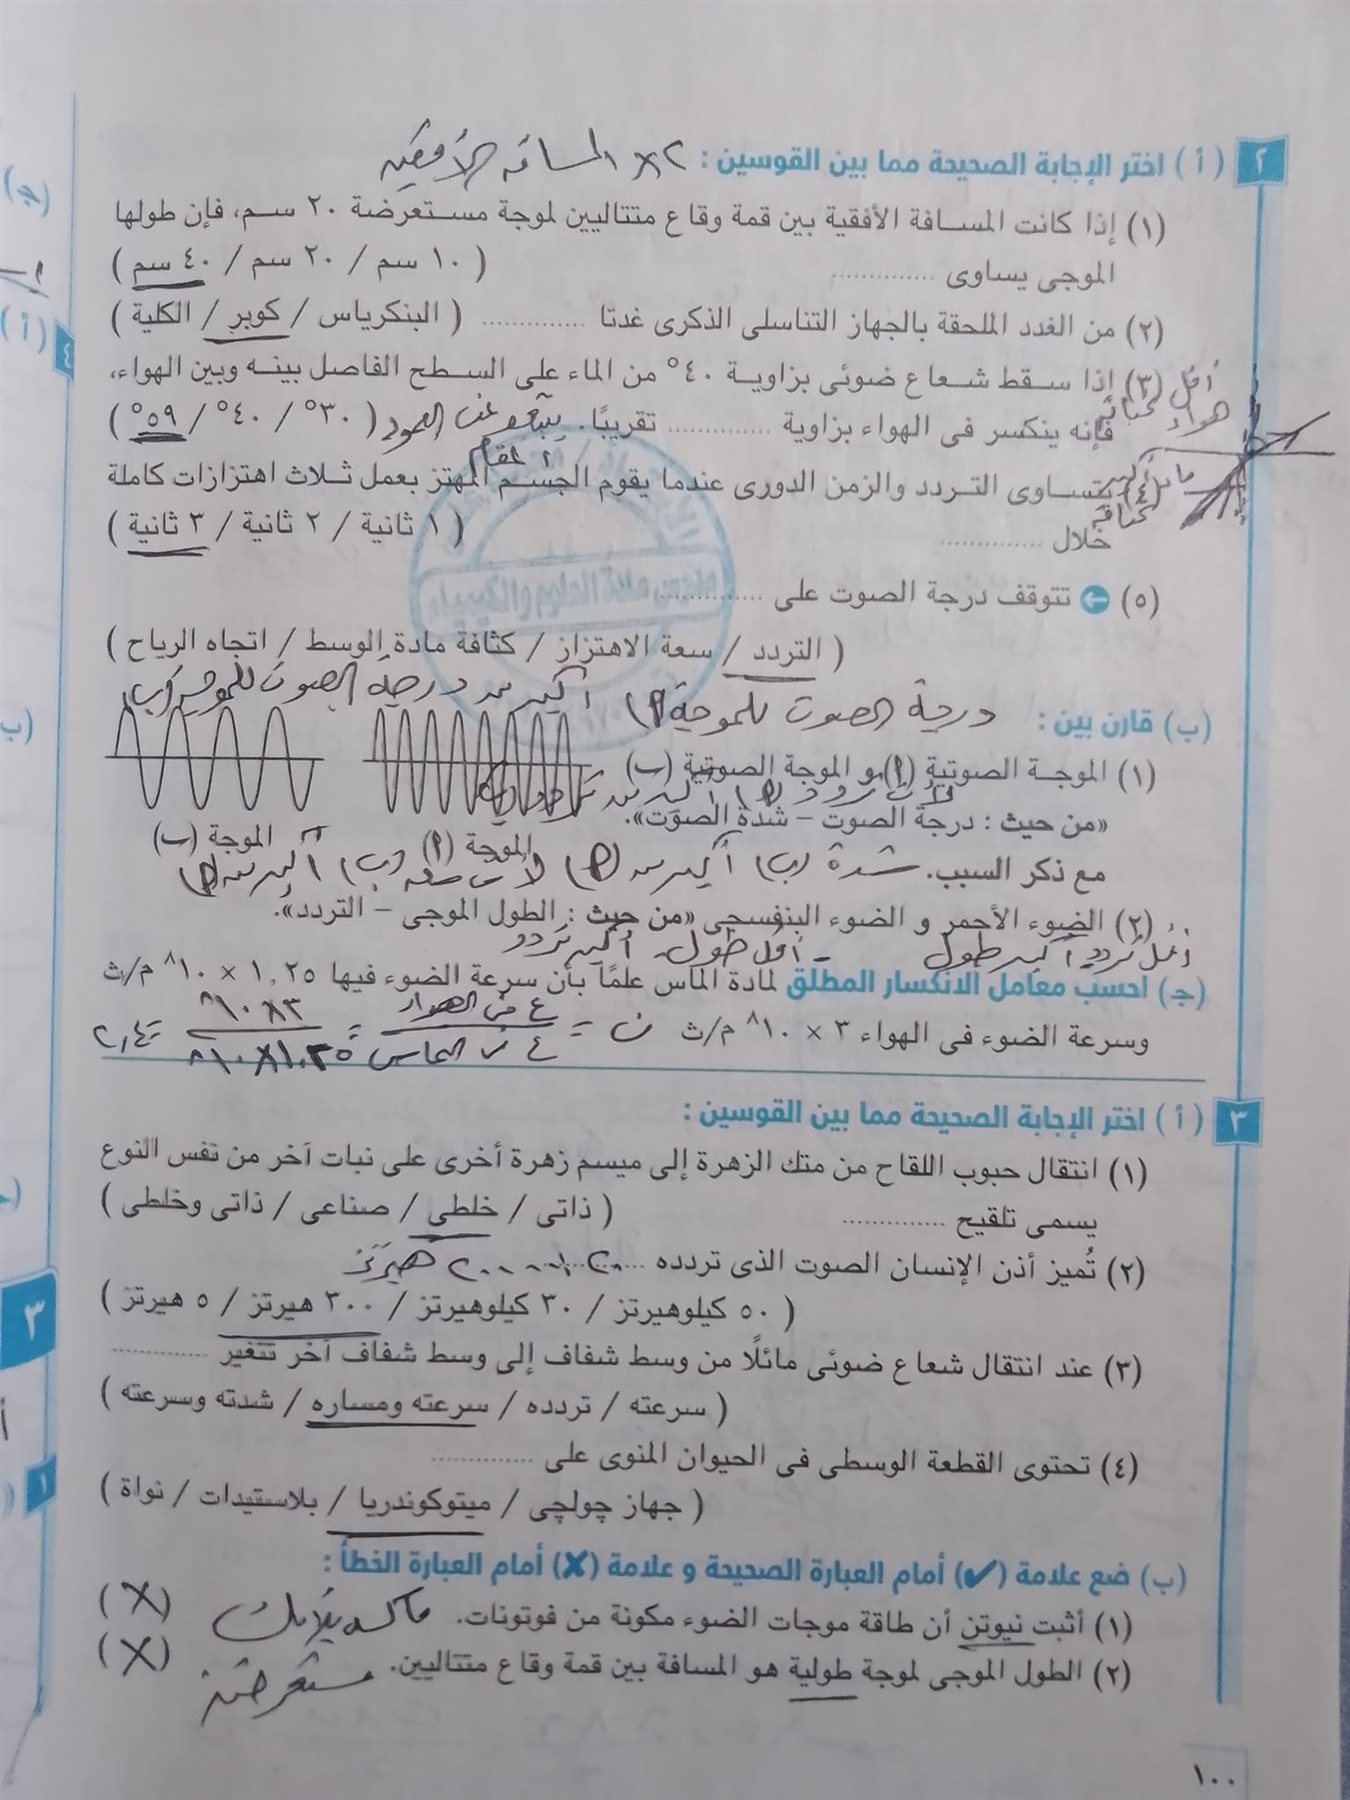 ٢ ( أ ) اختر الإجابة الصحيحة مما بين القوسين : ٢× المسافة الأفقية
(١) إذا كانت المسافة الأفقية بين قمة وقاع متتاليين لموجة مستعرضة ٢٠ سم، فإن طولها
الموجى يساوى .............. ( ١٠ سم / ٢٠ سم / ٤٠ سم )
(٢) من الغدد الملحقة بالجهاز التناسلى الذكرى غدتا .............. ( البنكرياس / كوبر / الكلية )
(٣) إذا سقط شعاع ضوئى بزاوية ٤٠° من الماء على السطح الفاصل بينه وبين الهواء،
أقل كثافة
هواء
فإنه ينكسر فى الهواء بزاوية .............. تقريبًا. يبتعد عن العمود ( ٣٠° / ٤٠° / ٥٩° )
المقام
ماء أكبر كثافة
(٤) يتساوى التردد والزمن الدورى عندما يقوم الجسم المهتز بعمل ثلاث اهتزازات كاملة
خلال .............. ( ١ ثانية / ٢ ثانية / ٣ ثانية )
(٥) تتوقف درجة الصوت على ..............
( التردد / سعة الاهتزاز / كثافة مادة الوسط / اتجاه الرياح )
مدرس مادة العلوم والكيمياء
(ب) قارن بين : درجة الصوت للموجة (أ) أكبر من درجة الصوت للموجة (ب)
(١) الموجة الصوتية (أ) و الموجة الصوتية (ب)
لأن تردد (أ) أكبر من تردد (ب)
«من حيث : درجة الصوت – شدة الصوت».
الموجة (أ) الموجة (ب)
مع ذكر السبب. شدة (ب) أكبر من (أ) لأن سعة (ب) أكبر من (أ)
(٢) الضوء الأحمر و الضوء البنفسجى «من حيث : الطول الموجى – التردد».
أقل تردد أكبر طول - أقل طول أكبر تردد
(جـ) احسب معامل الانكسار المطلق لمادة الماس علمًا بأن سرعة الضوء فيها ١,٢٥ × ١٠^٨ م/ث
وسرعة الضوء فى الهواء ٣ × ١٠^٨ م/ث ن = ع فى الهواء / ع الماس = ٣×١٠^٨ / ١,٢٥×١٠^٨ = ٢,٤
٣ ( أ ) اختر الإجابة الصحيحة مما بين القوسين :
(١) انتقال حبوب اللقاح من متك الزهرة إلى ميسم زهرة أخرى على نبات آخر من نفس النوع
يسمى تلقيح .............. ( ذاتى / خلطى / صناعى / ذاتى وخلطى )
(٢) تُميز أذن الإنسان الصوت الذى تردده .............. ٢٠ - ٢٠٠٠٠ هيرتز
( ٥٠ كيلوهيرتز / ٣٠ كيلوهيرتز / ٣٠٠ هيرتز / ٥ هيرتز )
(٣) عند انتقال شعاع ضوئى مائلًا من وسط شفاف إلى وسط شفاف آخر تتغير ..............
( سرعته / تردده / سرعته ومساره / شدته وسرعته )
(٤) تحتوى القطعة الوسطى فى الحيوان المنوى على ..............
( جهاز چولچى / ميتوكوندريا / بلاستيدات / نواة )
(ب) ضع علامة (✔) أمام العبارة الصحيحة و علامة (✘) أمام العبارة الخطأ :
(١) أثبت نيوتن أن طاقة موجات الضوء مكونة من فوتونات. ماكس بلانك (X)
(٢) الطول الموجى لموجة طولية هو المسافة بين قمة وقاع متتاليين. مستعرضة (X)
١٠٠